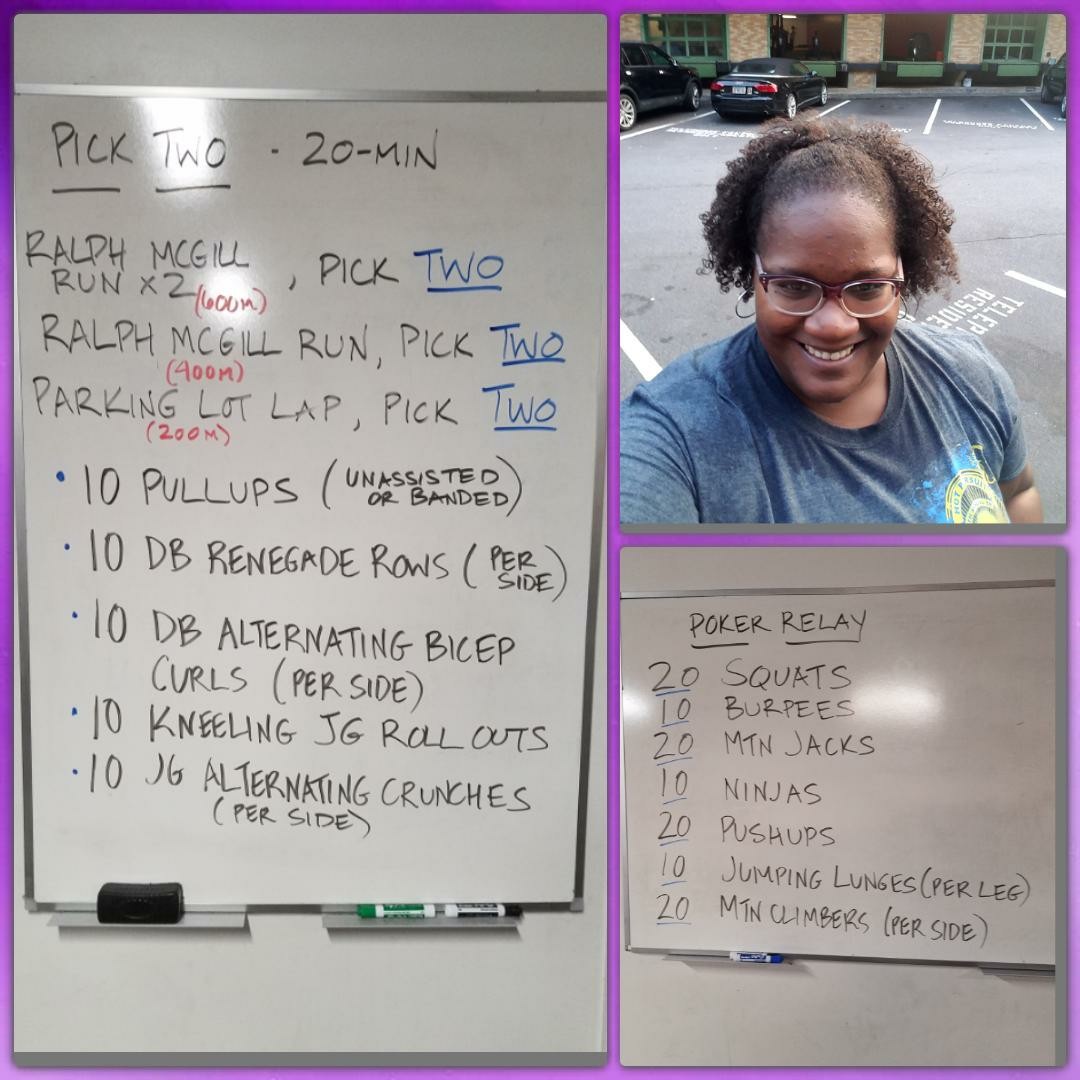 PICK TWO - 20-MIN
RALPH MCGILL
RUN x2 (600M), PICK TWO
RALPH MCGILL RUN, PICK TWO
(400M)
PARKING LOT LAP, PICK TWO
(200M)
• 10 PULLUPS (UNASSISTED
OR BANDED)
• 10 DB RENEGADE ROWS (PER
SIDE)
• 10 DB ALTERNATING BICEP
CURLS (PER SIDE)
• 10 KNEELING JG ROLL OUTS
• 10 JG ALTERNATING CRUNCHES
(PER SIDE)
POKER RELAY
20 SQUATS
10 BURPEES
20 MTN JACKS
10 NINJAS
20 PUSHUPS
10 JUMPING LUNGES (PER LEG)
20 MTN CLIMBERS (PER SIDE)